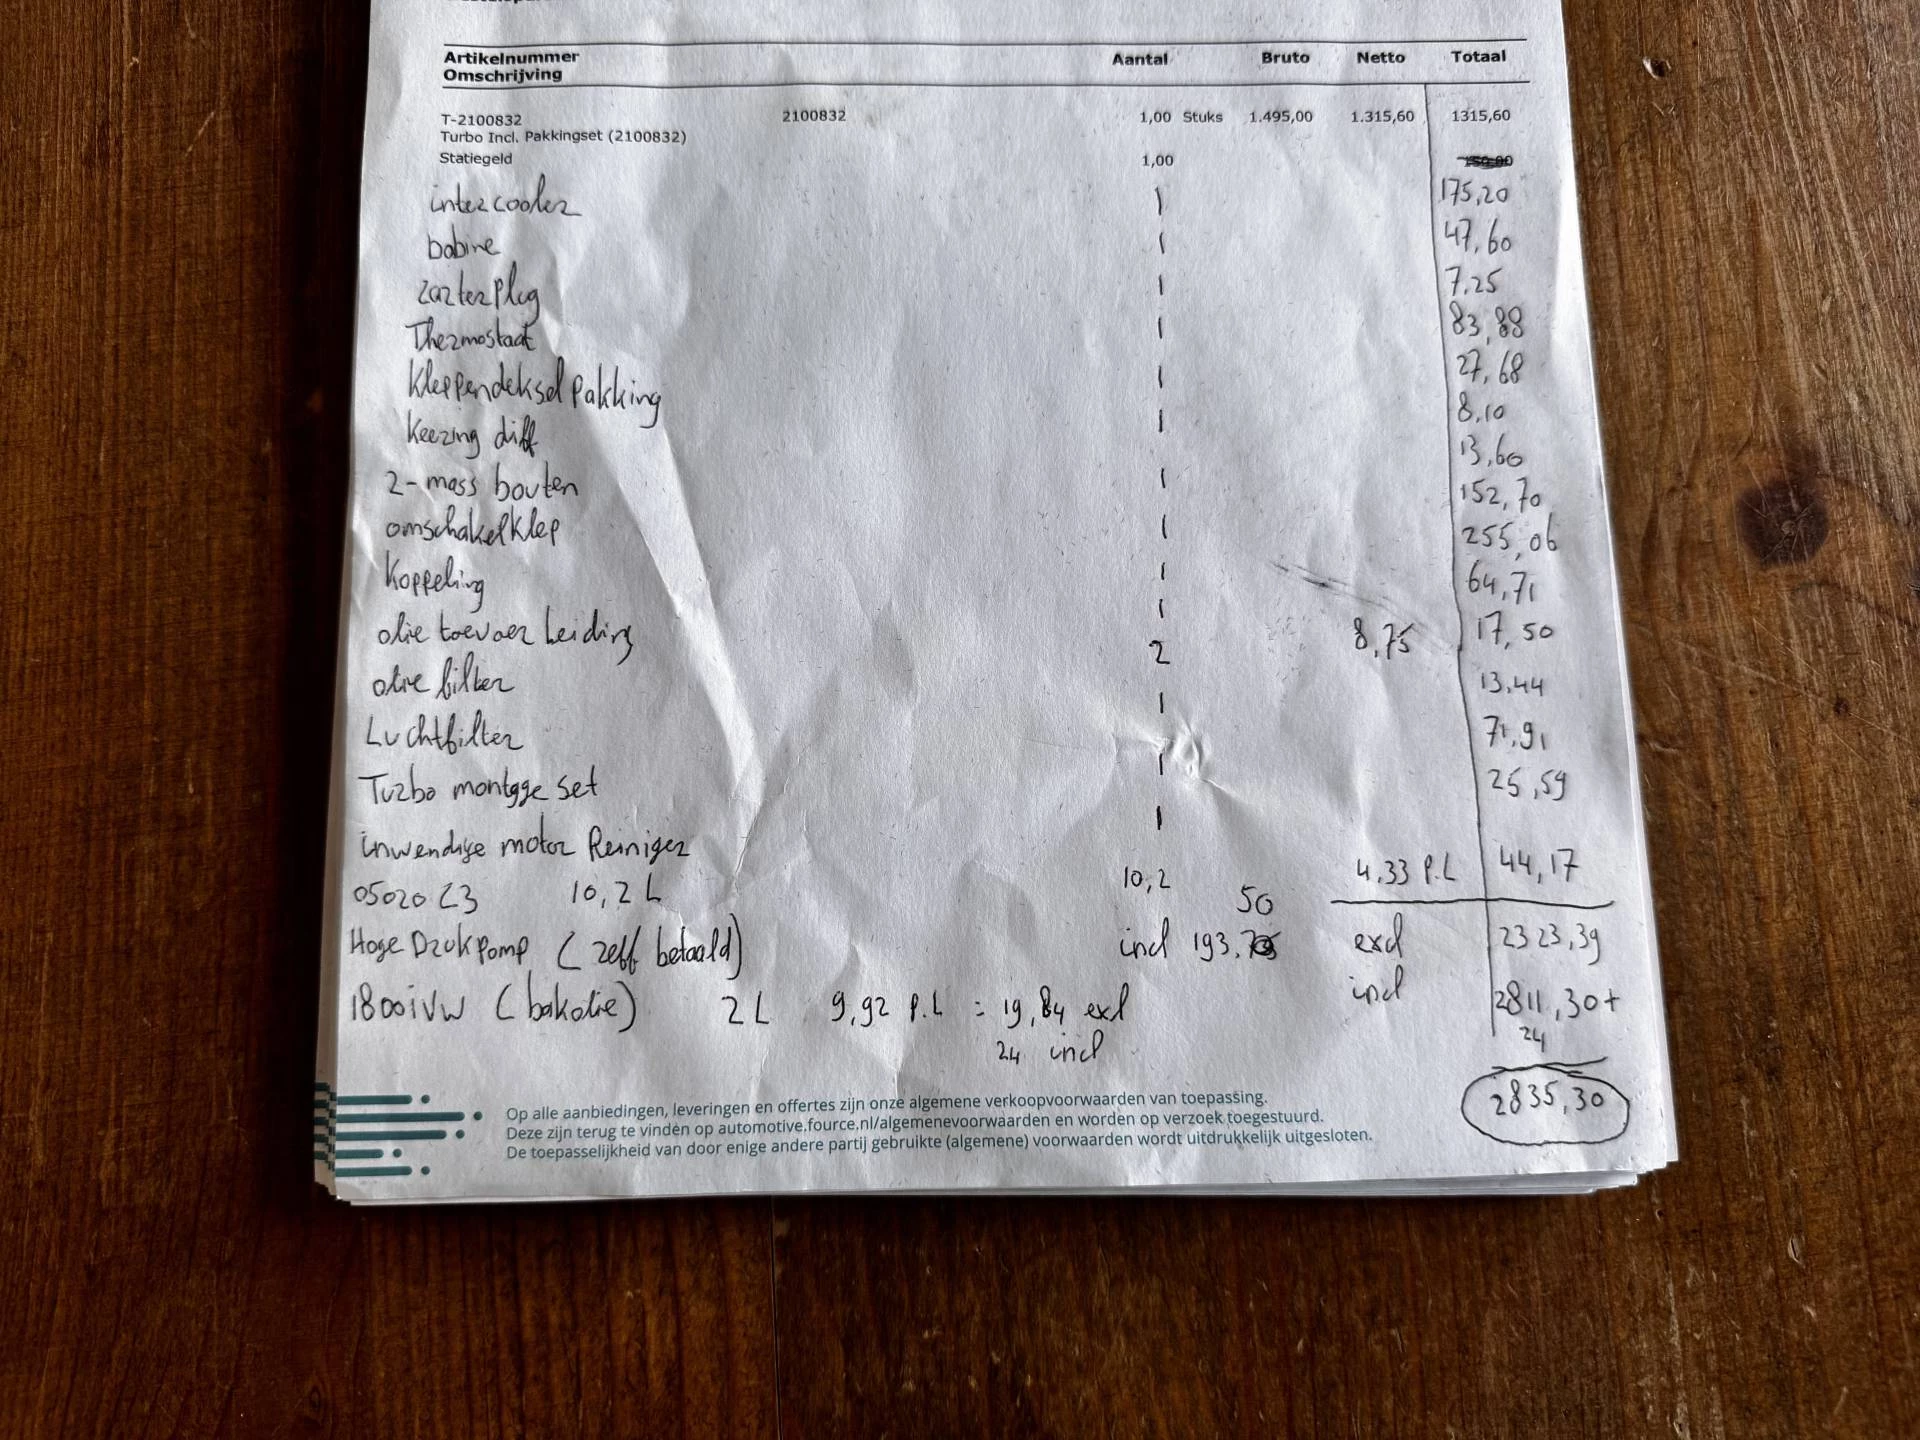 Artikelnummer Aantal Bruto Netto Totaal
Omschrijving
T-2100832 2100832 1,00 Stuks 1.495,00 1.315,60 1315,60
Turbo Incl. Pakkingset (2100832)
Statiegeld 1,00
intercooler 1 175,20
bobine 1 47,60
Carterplug 1 7,25
Thermostaat 1 83,88
Kleppendeksel Pakking 1 27,68
Keering diff 1 8,10
2-mass bouten 1 13,60
omschakelklep 1 152,70
Koppeling 1 255,06
olie toevoer Leiding 1 64,71
olie filter 2 8,75 17,50
Luchtfilter 1 13,44
Turbo montage set 1 71,91
inwendige motor Reiniger 1 25,59
05020 C3 10,2 L 10,2 4,33 P.L 44,17
Hoge Drukpomp (zelf betaald) incl 193, 50 excl 2323,39
incl 2811,30+
1800iVW (bakolie) 2 L 9,92 P.L = 19,84 exl 24
24 incl
2835,30
Op alle aanbiedingen, leveringen en offertes zijn onze algemene verkoopvoorwaarden van toepassing.
Deze zijn terug te vinden op automotive.fource.nl/algemenevoorwaarden en worden op verzoek toegestuurd.
De toepasselijkheid van door enige andere partij gebruikte (algemene) voorwaarden wordt uitdrukkelijk uitgesloten.